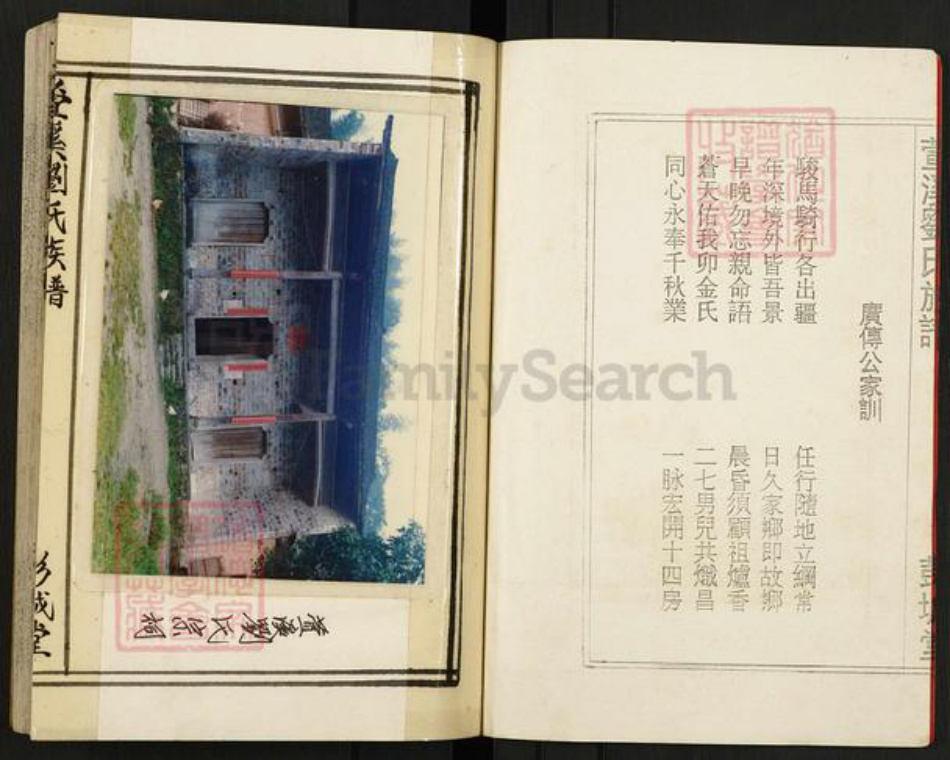 廣傳公家訓
駿馬騎行各出疆
任行隨地立綱常
年深境外皆吾景
日久家鄉即故鄉
早晚勿忘親命語
晨昏須顧祖爐香
蒼天佑我卯金氏
二七男兒共熾昌
同心永奉千秋業
一脉宏開十四房
劉氏宗祠
劉氏族譜
彭城堂
FamilySearch